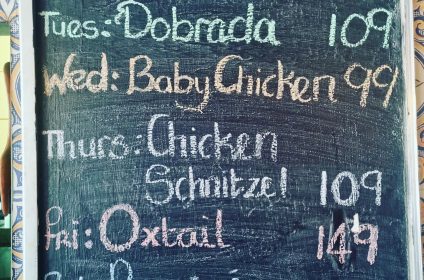 Tues: Dobrada 109
Wed: Baby Chicken 99
Thurs: Chicken
Schnitzel 109
Fri: Oxtail 149